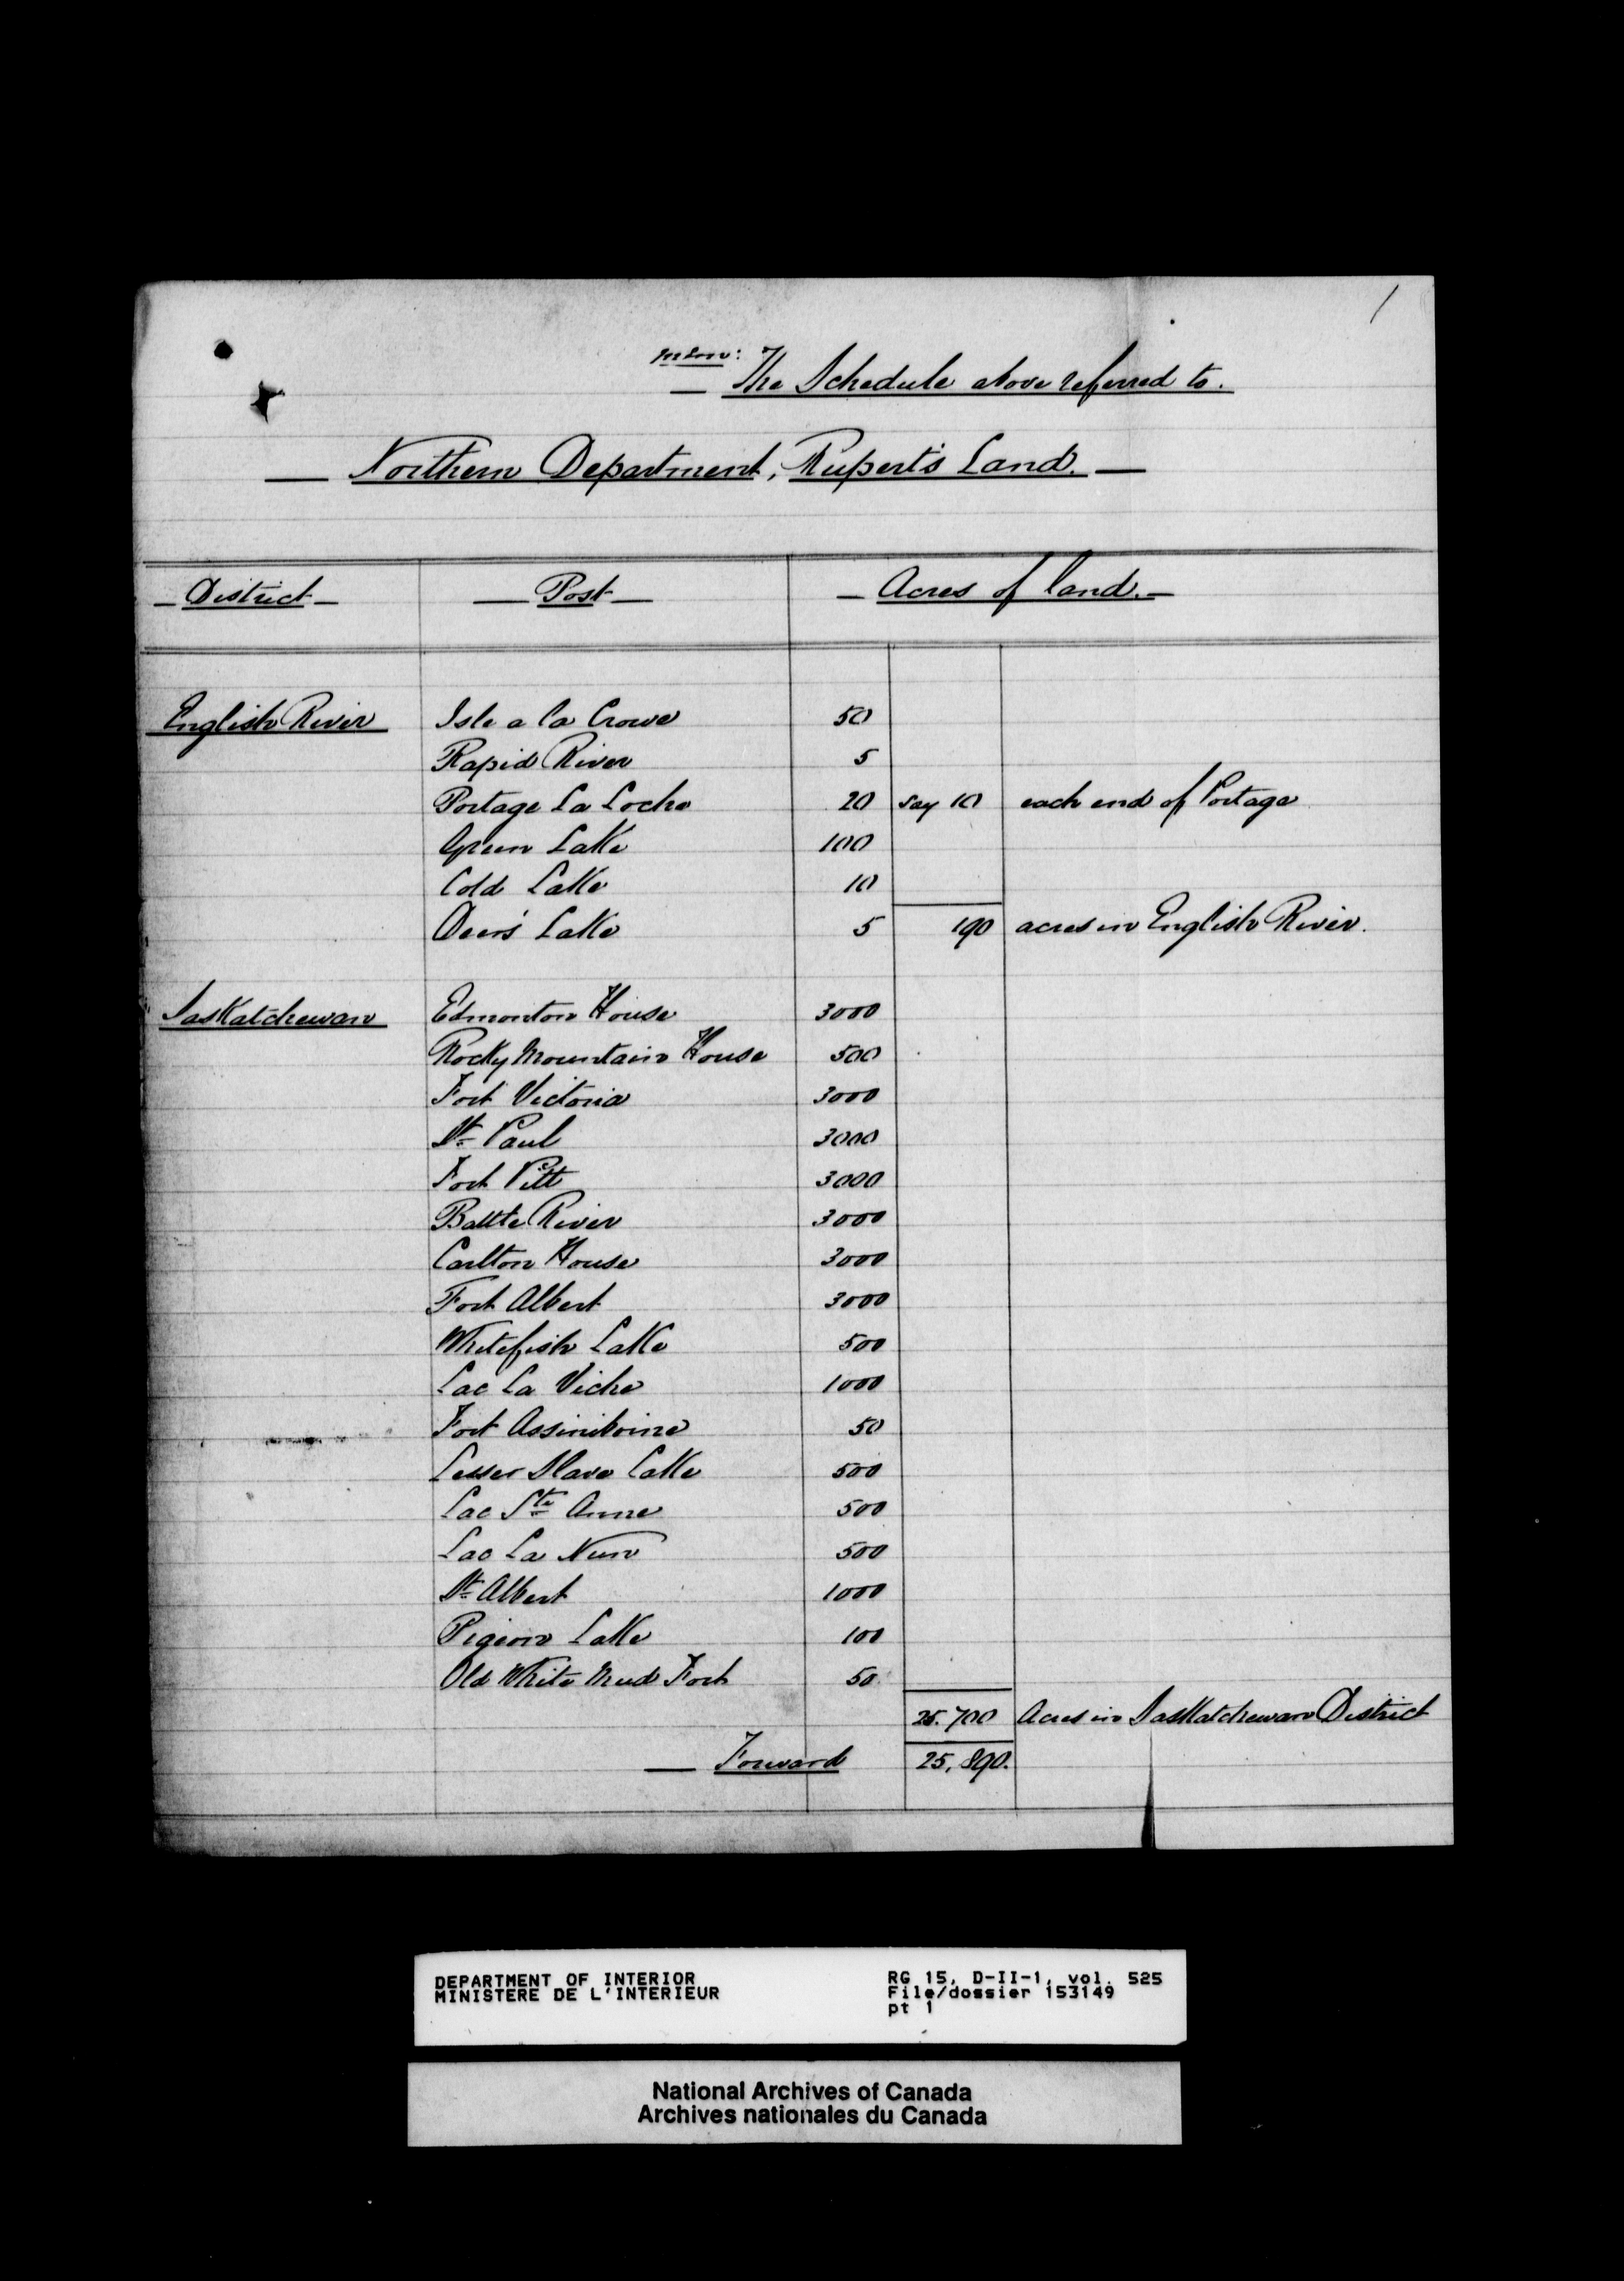 1
mem:
The Schedule above referred to.
Northern Department, Rupert's Land.
District Post Acres of land.
English River Isle a la Crosse 50
Rapid River 5
Portage La Loche 20 say 10 each end of Portage
Green Lake 100
Cold Lake 10
Deer's Lake 5 190 acres in English River.
Saskatchewan Edmonton House 3000
Rocky Mountain House 500
Fort Victoria 3000
St Paul 3000
Fort Pitt 3000
Battle River 3000
Carlton House 3000
Fort Albert 3000
Whitefish Lake 500
Lac La Biche 1000
Fort Assiniboine 50
Lesser Slave Lake 500
Lac Ste Anne 500
Lac La Nun 500
St Albert 1000
Pigeon Lake 100
Old White Mud Fort 50
25.700 Acres in Saskatchewan District
Forward 25,890.
DEPARTMENT OF INTERIOR
MINISTERE DE L'INTERIEUR
RG 15, D-II-1, vol. 525
File/dossier 153149
pt 1
National Archives of Canada
Archives nationales du Canada